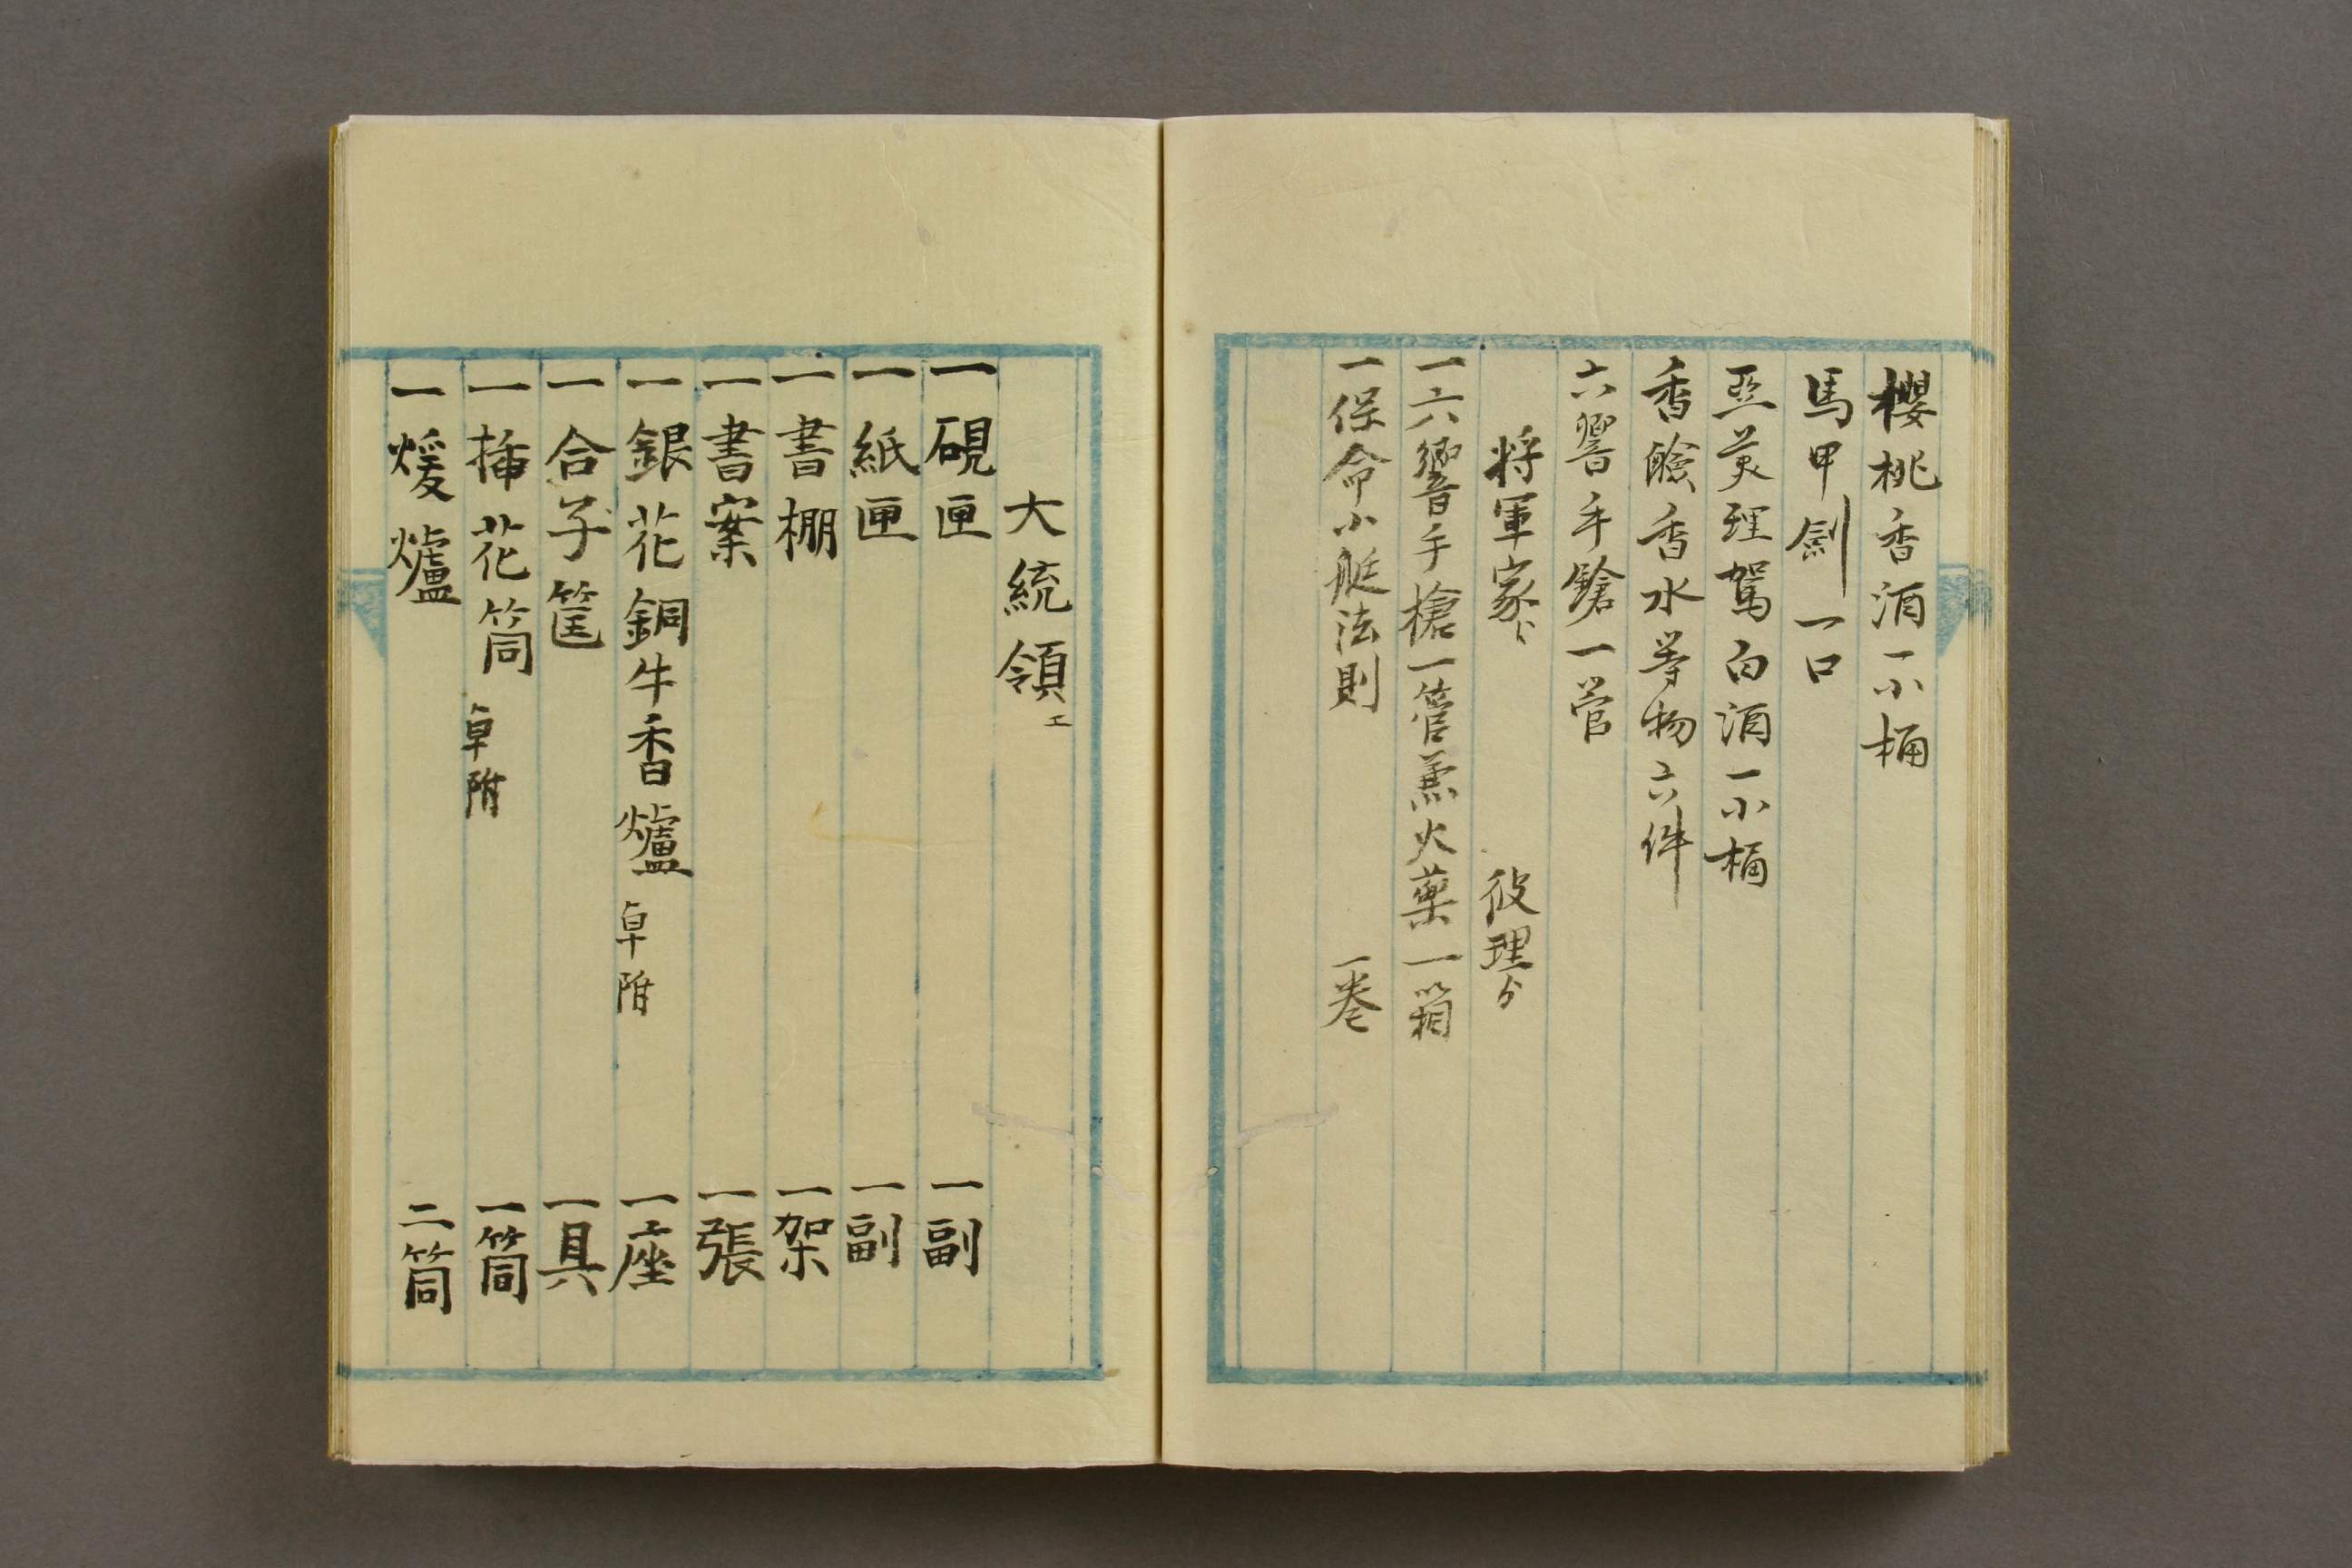 櫻桃香酒一小桶
馬甲劍一口
亞英理駕白酒一小桶
香醶香水等物六件
六響手鎗一管
將軍家ヘ 彼理ゟ
一六響手槍一管薫火藥一箱
一保命小艇法則 一卷
大統領エ
一硯匣 一副
一紙匣 一副
一書棚 一架
一書案 一張
一銀花銅牛香爐 卓附 一座
一合子筐 一具
一挿花筒 卓附 一筒
一煖爐 二筒